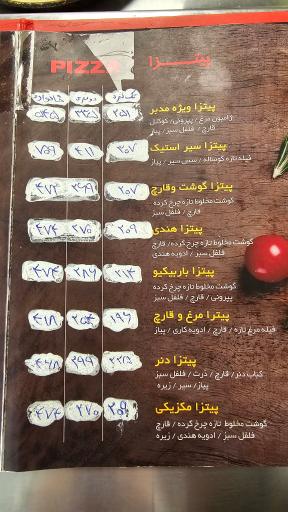 PIZZA پیتــزا
تک نفره دو نفره خانواده
پیتزا ویژه مدیر
ژامبون مرغ / پپرونی / کوکتل
قارچ / فلفل سبز / پیاز
پیتزا سیر استیک ۳۰۷ ۴۱۱ ۷۵۹
فیله تازه گوساله / سس سیر / پیاز
پیتزا گوشت وقارچ ۲۰۷ ۲۹۹ ۴۷۴
گوشت مخلوط تازه چرخ کرده
قارچ / فلفل سبز
پیتزا هندی ۲۰۹ ۲۷۰ ۴۷۴
گوشت مخلوط تازه چرخ کرده / قارچ
فلفل سبز / ادویه هندی
پیتزا باربیکیو ۲۱۴ ۲۸۷ ۴۷۴
گوشت مخلوط تازه چرخ کرده
پپرونی / قارچ / فلفل سبز
پیتزا مرغ و قارچ ۱۹۶ ۲۵۴ ۴۱۸
فیله مرغ تازه / قارچ / ادویه کاری / پیاز
پیتزا دنر ۲۹۹
کباب دنر / قارچ / ذرت / فلفل سبز
پیاز / سیر / زیره
پیتزا مکزیکی ۲۰۹ ۲۷۰ ۴۷۴
گوشت مخلوط تازه چرخ کرده / قارچ
فلفل سبز / ادویه هندی / زیره